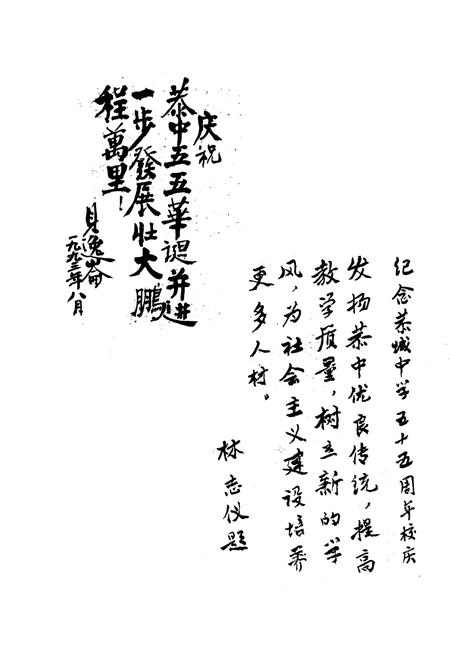 庆祝
恭中五五華诞并进
一步發展壮大鹏
程萬里！
逸崙
一九九三年八月
纪念恭城中学五十五周年校庆
发扬恭中优良传统，提高
教学质量，树立新的学
风，为社会主义建设培养
更多人材。
林志仪题